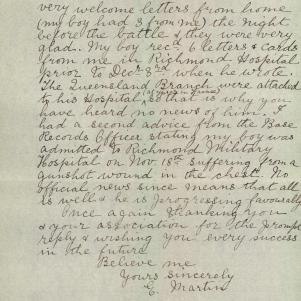 very welcome letters from home
(my boy had 3 from me) the night
before the battle & they were very
glad. My boy recd 6 letters & cards
from me in Richmond Hospital
prior to Decr 3rd when he wrote.
The Queensland Branch were attached
to his Hospital, & that is why you
have heard no news of him. I
had a second advice from the Base
Records Officer stating my boy was
admitted to Richmond Military
Hospital on Nov 18th suffering from a
gunshot wound in the chest. No
official news since means that all
is well & he is progressing favourably
Once again thanking you
& your association for the prompt
reply & wishing you every success
in the future
Believe me
Yours sincerely
E. Martin